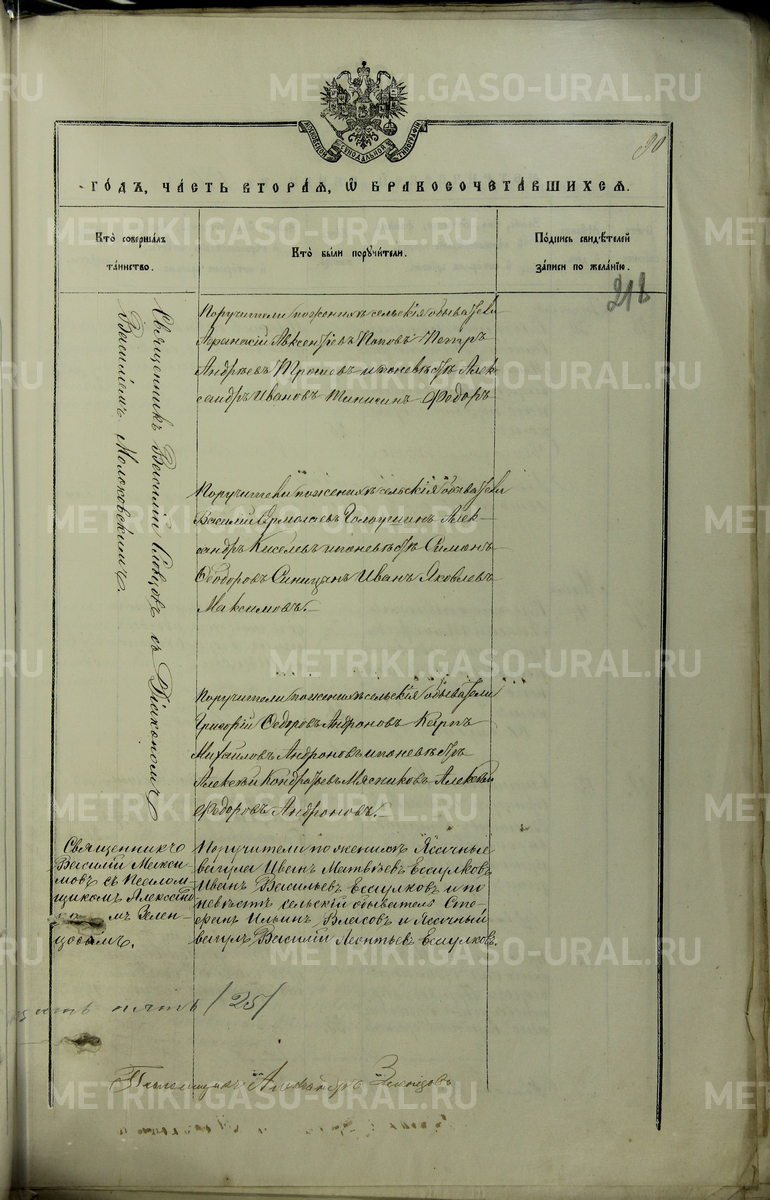 90
МОСКОВСКОЙ СѴНОДАЛЬНОЙ ТИПОГРАФІИ
ГОДЪ, ЧАСТЬ ВТОРАЯ, Ѿ БРАКОСОЧЕТАВШИХСЯ.
Кто совершалъ
таинство.
Кто были поручители.
Подпись свидѣтелей
записи по желанію.
218
Священникъ Василій съ Діакономъ
Василіемъ Молоковскимъ.
Поручители по женихѣ сельскія обыватели
Афанасій Авксентіевъ Поповъ Петръ
Андреевъ и по невѣстѣ Алек-
сандръ Ивановъ Ѳедоръ
Поручители по женихѣ сельскія обыватели
Василій Ермолаевъ Алек-
сандръ Киселевъ и по невѣстѣ Симонъ
Ѳеодоровъ Синицынъ Иванъ Яковлевъ
Максимовъ.
Поручители по женихѣ сельскія обыватели
Григорій Ѳедоровъ Андроновъ Карпъ
Михайловъ Андроновъ и по невѣстѣ
Алексѣй Кондратьевъ Мясниковъ Алексѣй
Ѳедоровъ Андроновъ.
Священникъ
Василій Макси-
мовъ съ Псалом-
щикомъ
мъ Зелен-
цовымъ.
Поручители по женихѣ Ясачные
вагула Иванъ Матвѣевъ Есаулковъ
Иванъ Васильевъ Есаулковъ и по
невѣстѣ сельскій обыватель Сте-
фанъ Ильинъ Власовъ и Ясачный
вагулъ Василій Леонтьевъ Есаулковъ.
пять /25/
Псаломщикъ Александръ Зеленцовъ
METRIKI.GASO-URAL.RU